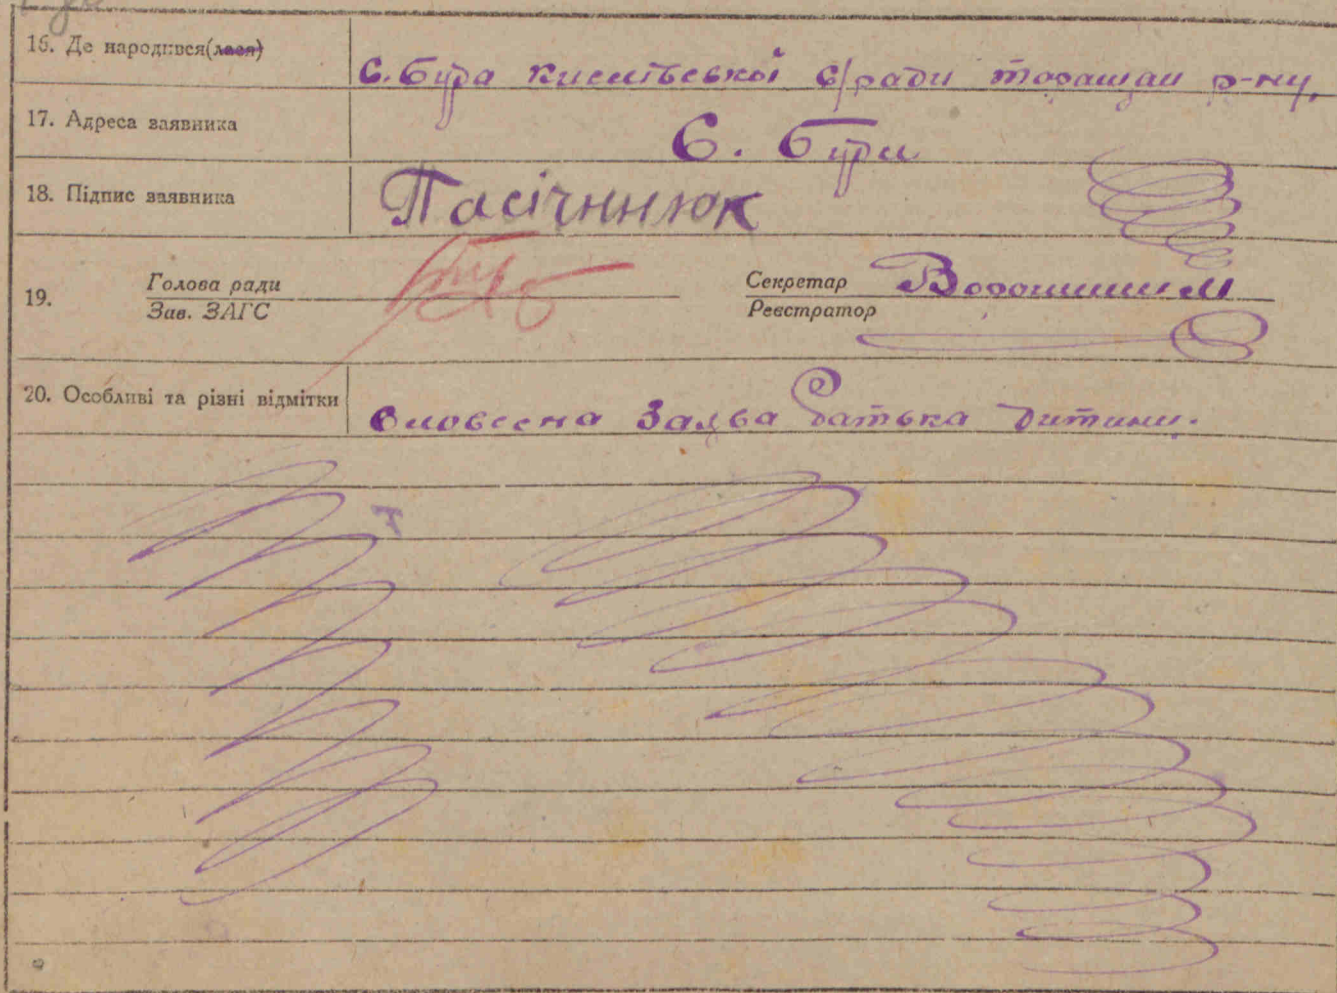 16. Де народився(лася) с. Бура Кислівської с/ради Таращан р-ну,
17. Адреса заявника с. Бури
18. Підпис заявника Пасічннюк
19. Голова ради Секретар
Зав. ЗАГС Реєстратор
20. Особливі та різні відмітки Словесна Заява батька дитини.